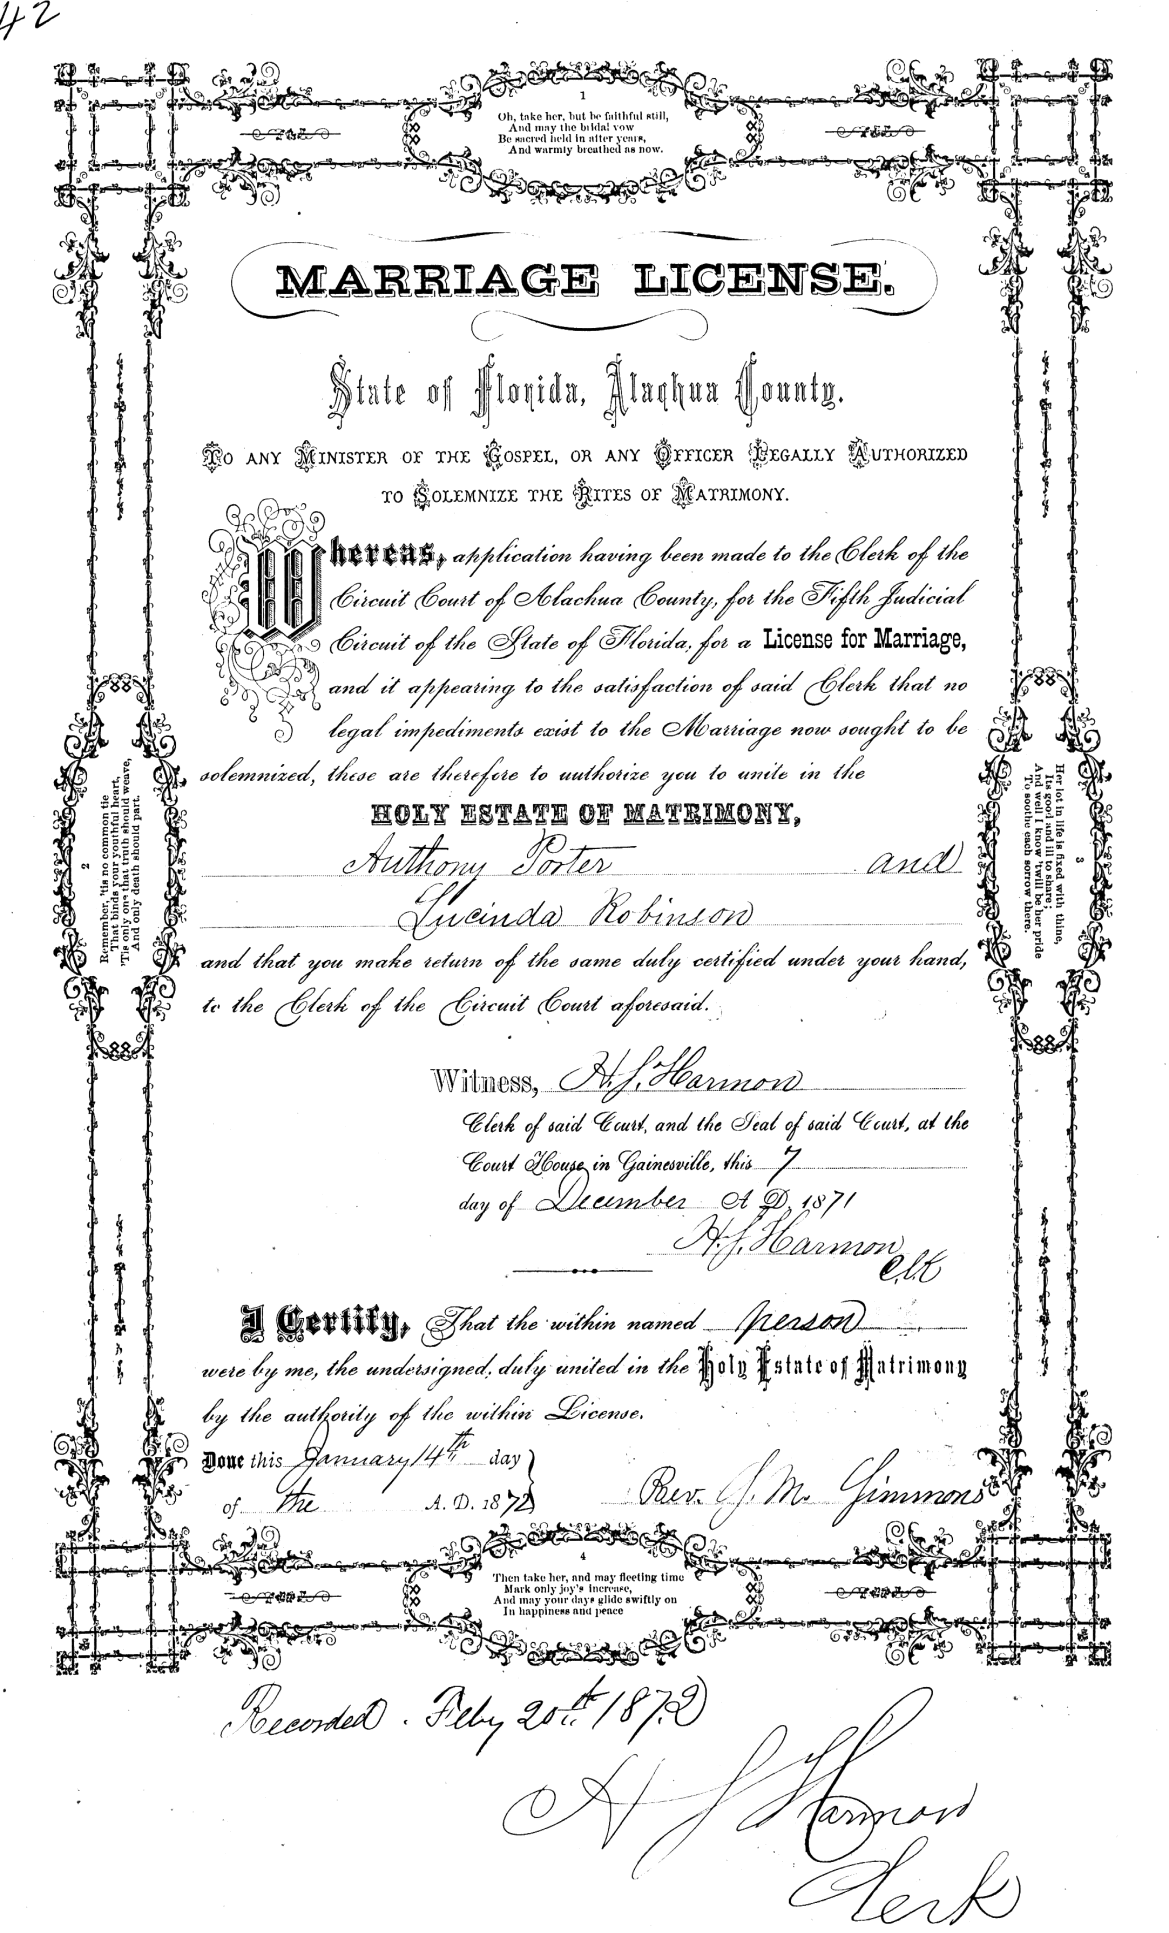 42
1
Oh, take her, but be faithful still,
And may the bridal vow
Be sacred held in after years,
And warmly breathed as now.
MARRIAGE LICENSE.
State of Florida, Alachua County.
TO ANY MINISTER OF THE GOSPEL, OR ANY OFFICER LEGALLY AUTHORIZED
TO SOLEMNIZE THE RITES OF MATRIMONY.
Whereas, application having been made to the Clerk of the
Circuit Court of Alachua County, for the Fifth Judicial
Circuit of the State of Florida, for a License for Marriage,
and it appearing to the satisfaction of said Clerk that no
legal impediments exist to the Marriage now sought to be
solemnized, these are therefore to authorize you to unite in the
HOLY ESTATE OF MATRIMONY,
Anthony Porter and
Lucinda Robinson
and that you make return of the same duly certified under your hand,
to the Clerk of the Circuit Court aforesaid.
2
Remember, 'tis no common tie
That binds your youthful heart,
'Tis only one that truth should weave,
And only death should part.
3
Her lot in life is fixed with thine,
Its good and ill to share;
And well I know 'twill be her pride
To soothe each sorrow there.
Witness, H. S. Harmon
Clerk of said Court, and the Seal of said Court, at the
Court House in Gainesville, this 7
day of December A. D. 1871
H. S. Harmon
Clk
I Certify, That the within named person
were by me, the undersigned, duly united in the Holy Estate of Matrimony
by the authority of the within License.
Done this January 14th day
of the A. D. 1872
Rev. J. M. Simmons
4
Then take her, and may fleeting time
Mark only joy's increase,
And may your days glide swiftly on
In happiness and peace
Recorded. Feby 20th 1872
H S Harmon
Clerk